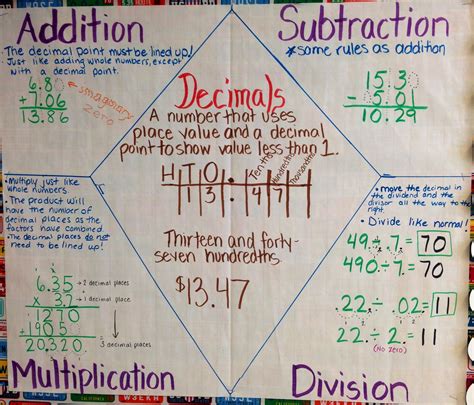 Addition
• The decimal point must be lined up!
Just like adding whole numbers, except
with a decimal point.
6.80
+ 7.06
13.86
imaginary
zero
Subtraction
*same rules as addition
15.3
- 5.01
10.29
Decimals
A number that uses
place value and a decimal
point to show value less than 1.
H T O . Tenths Hundredths Thousandths
1 3 . 4 7
Thirteen and forty-
seven hundredths
$13.47
• Multiply just like
whole numbers.
• The product will
have the number of
decimal places as the
factors have combined.
• The decimal places do not
need to be lined up!
6.35 → 2 decimal places
x 3.2 → 1 decimal places
1270
+19050
3 decimal places
Multiplication
• move the decimal in
the dividend and the
divisor all the way to the
right.
• Divide like normal
49. ÷ .7 = 70
490. ÷ 7. = 70
.22 ÷ .02 = 11
22. ÷ 2. = 11
(No Zero)
Division